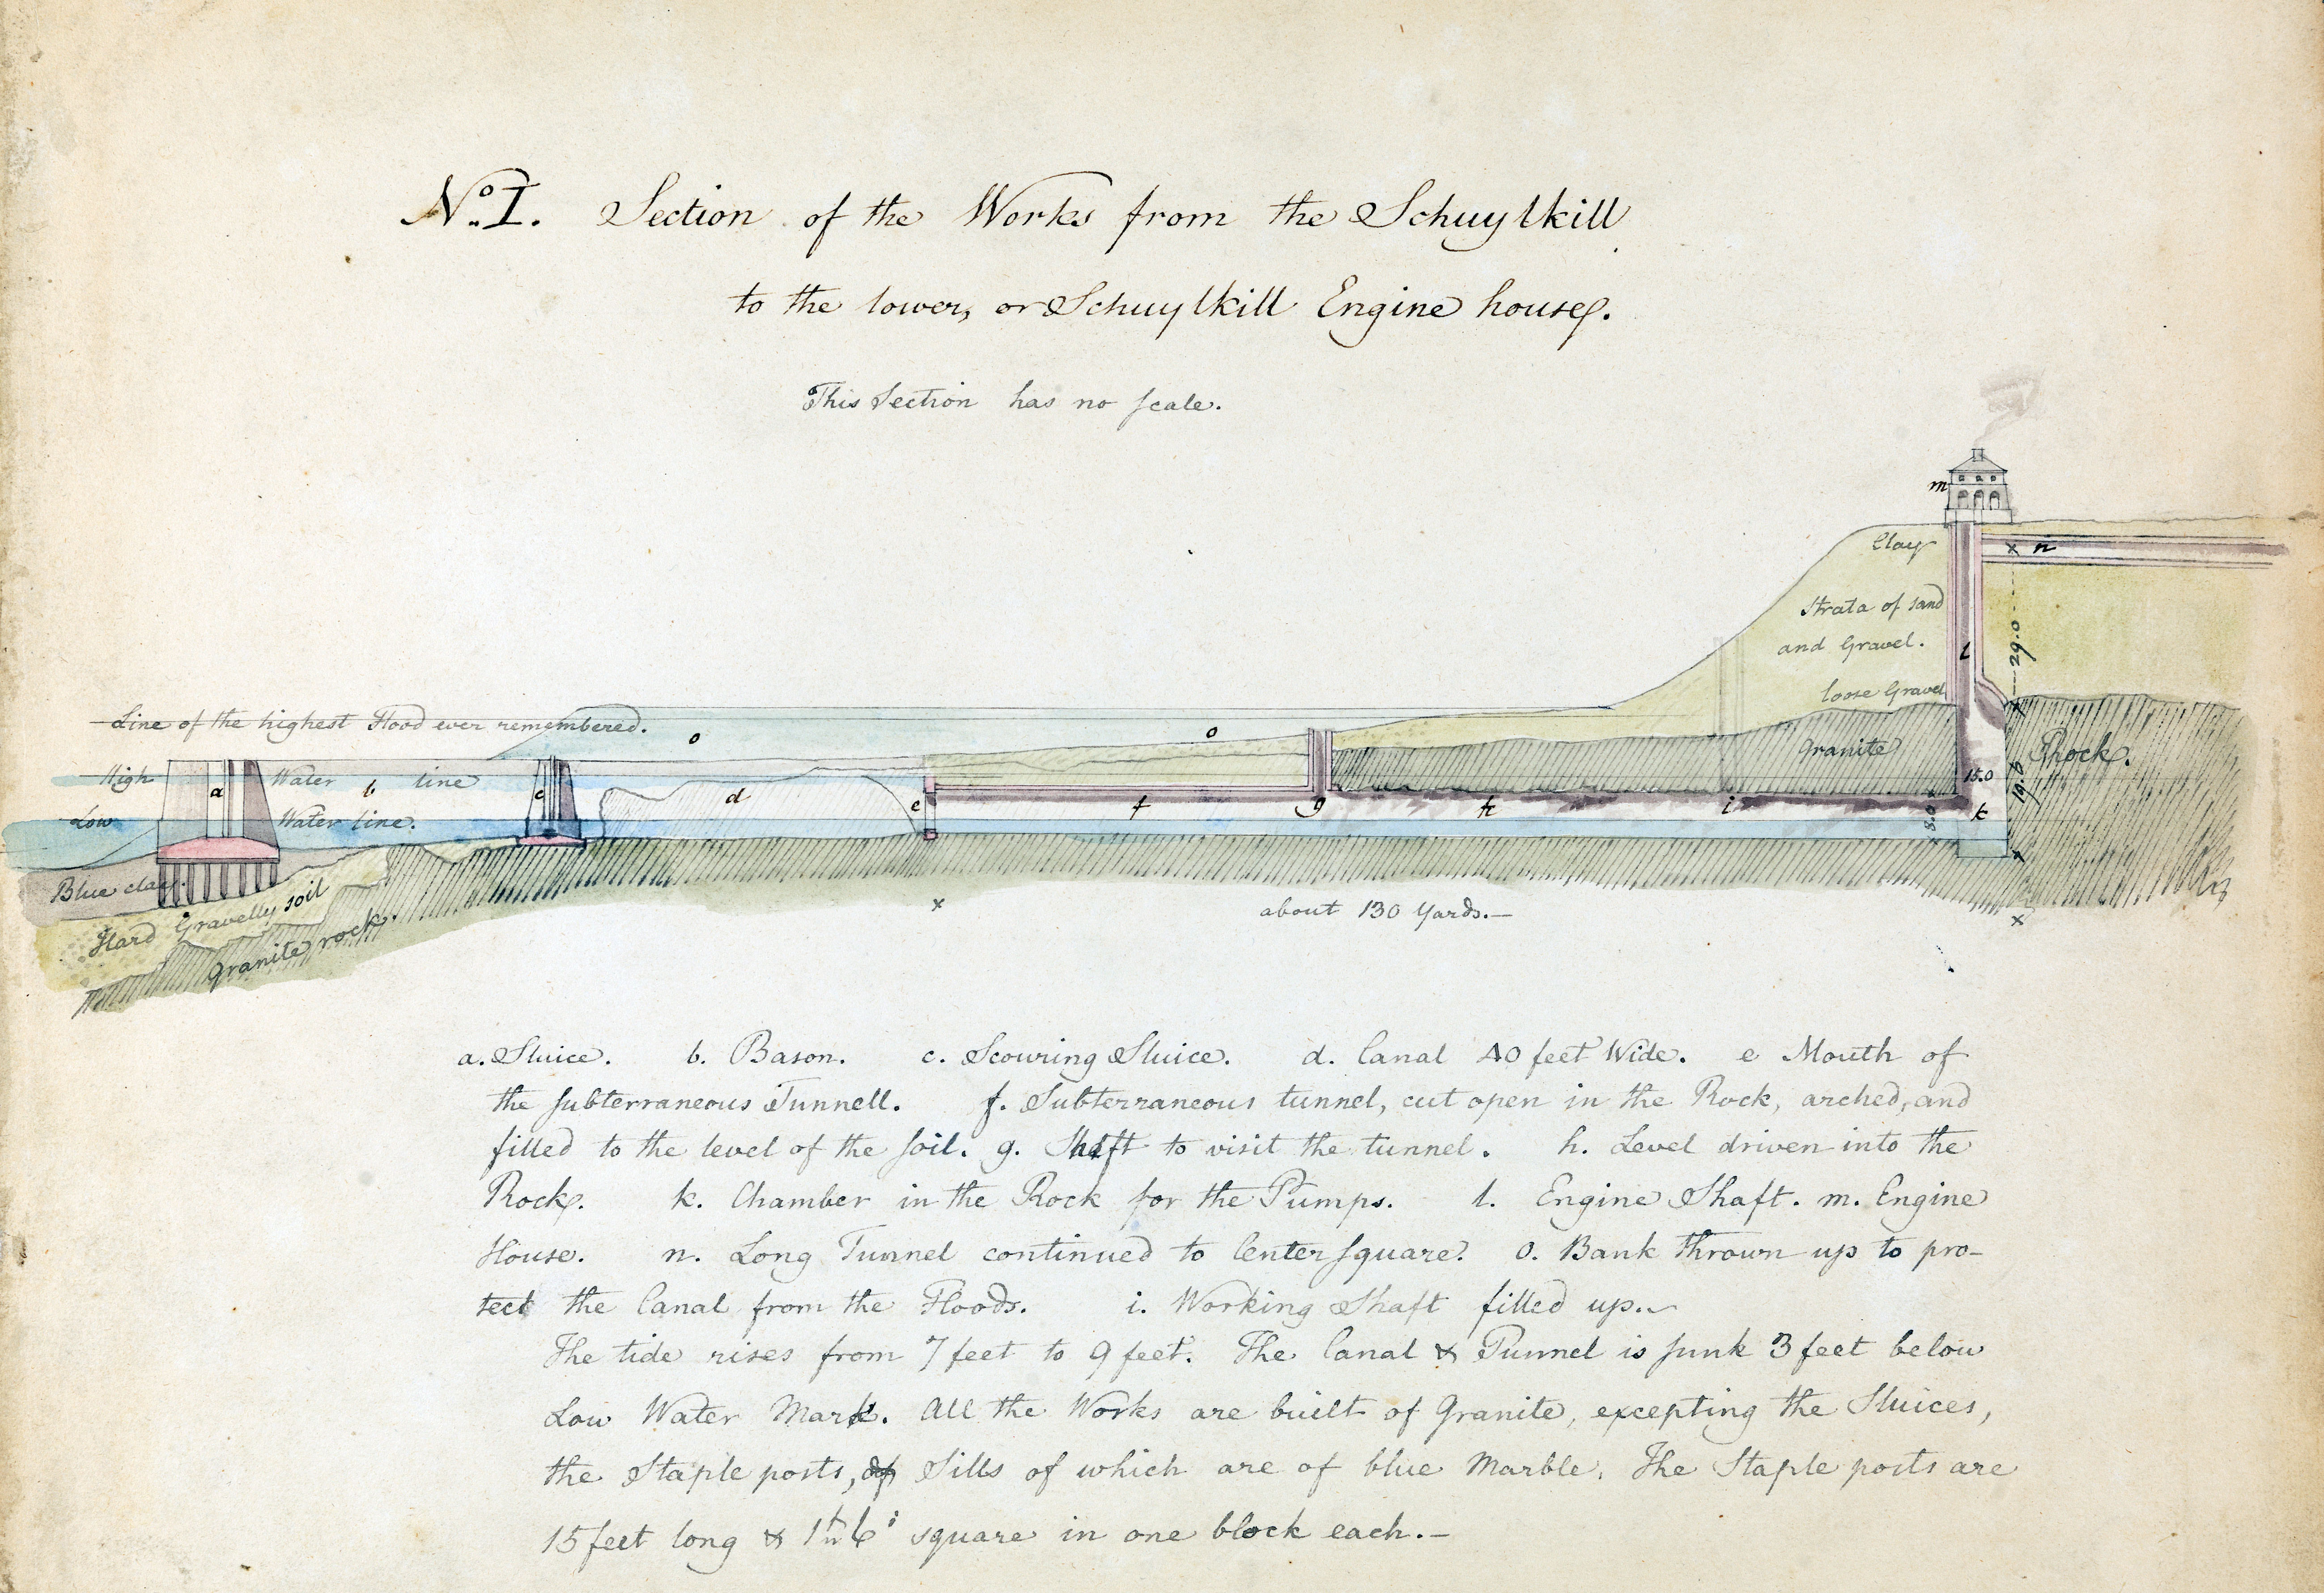 No. I. Section of the Works from the Schuylkill
to the lower, or Schuylkill Engine house.
This Section has no scale.
m
Clay
x n
Strata of sand
and Gravel.
l
29.0
loose Gravel
Line of the highest Flood ever remembered.
o
o
High Water line
Granite
Rock.
15.0
19.8
a
b
c
d
e
f
g
h
i
k
Low Water line.
8.0
Blue clay.
Hard Gravelly soil
Granite rock.
x about 130 Yards.— x
a. Sluice. b. Bason. c. Scouring Sluice. d. Canal 40 feet Wide. e Mouth of
the subterraneous Tunnell. f. Subterraneous tunnel, cut open in the Rock, arched, and
filled to the level of the soil. g. Shaft to visit the tunnel. h. Level driven into the
Rock. k. Chamber in the Rock for the Pumps. l. Engine Shaft. m. Engine
House. n. Long Tunnel continued to Center square. o. Bank thrown up to pro-
tect the Canal from the Floods. i. Working Shaft filled up.
The tide rises from 7 feet to 9 feet. The Canal & Tunnel is sunk 3 feet below
Low Water Mark. All the Works are built of Granite, excepting the Sluices,
the Staple posts, Sills of which are of blue Marble. The Staple posts are
15 feet long & 1 6 square in one block each.—